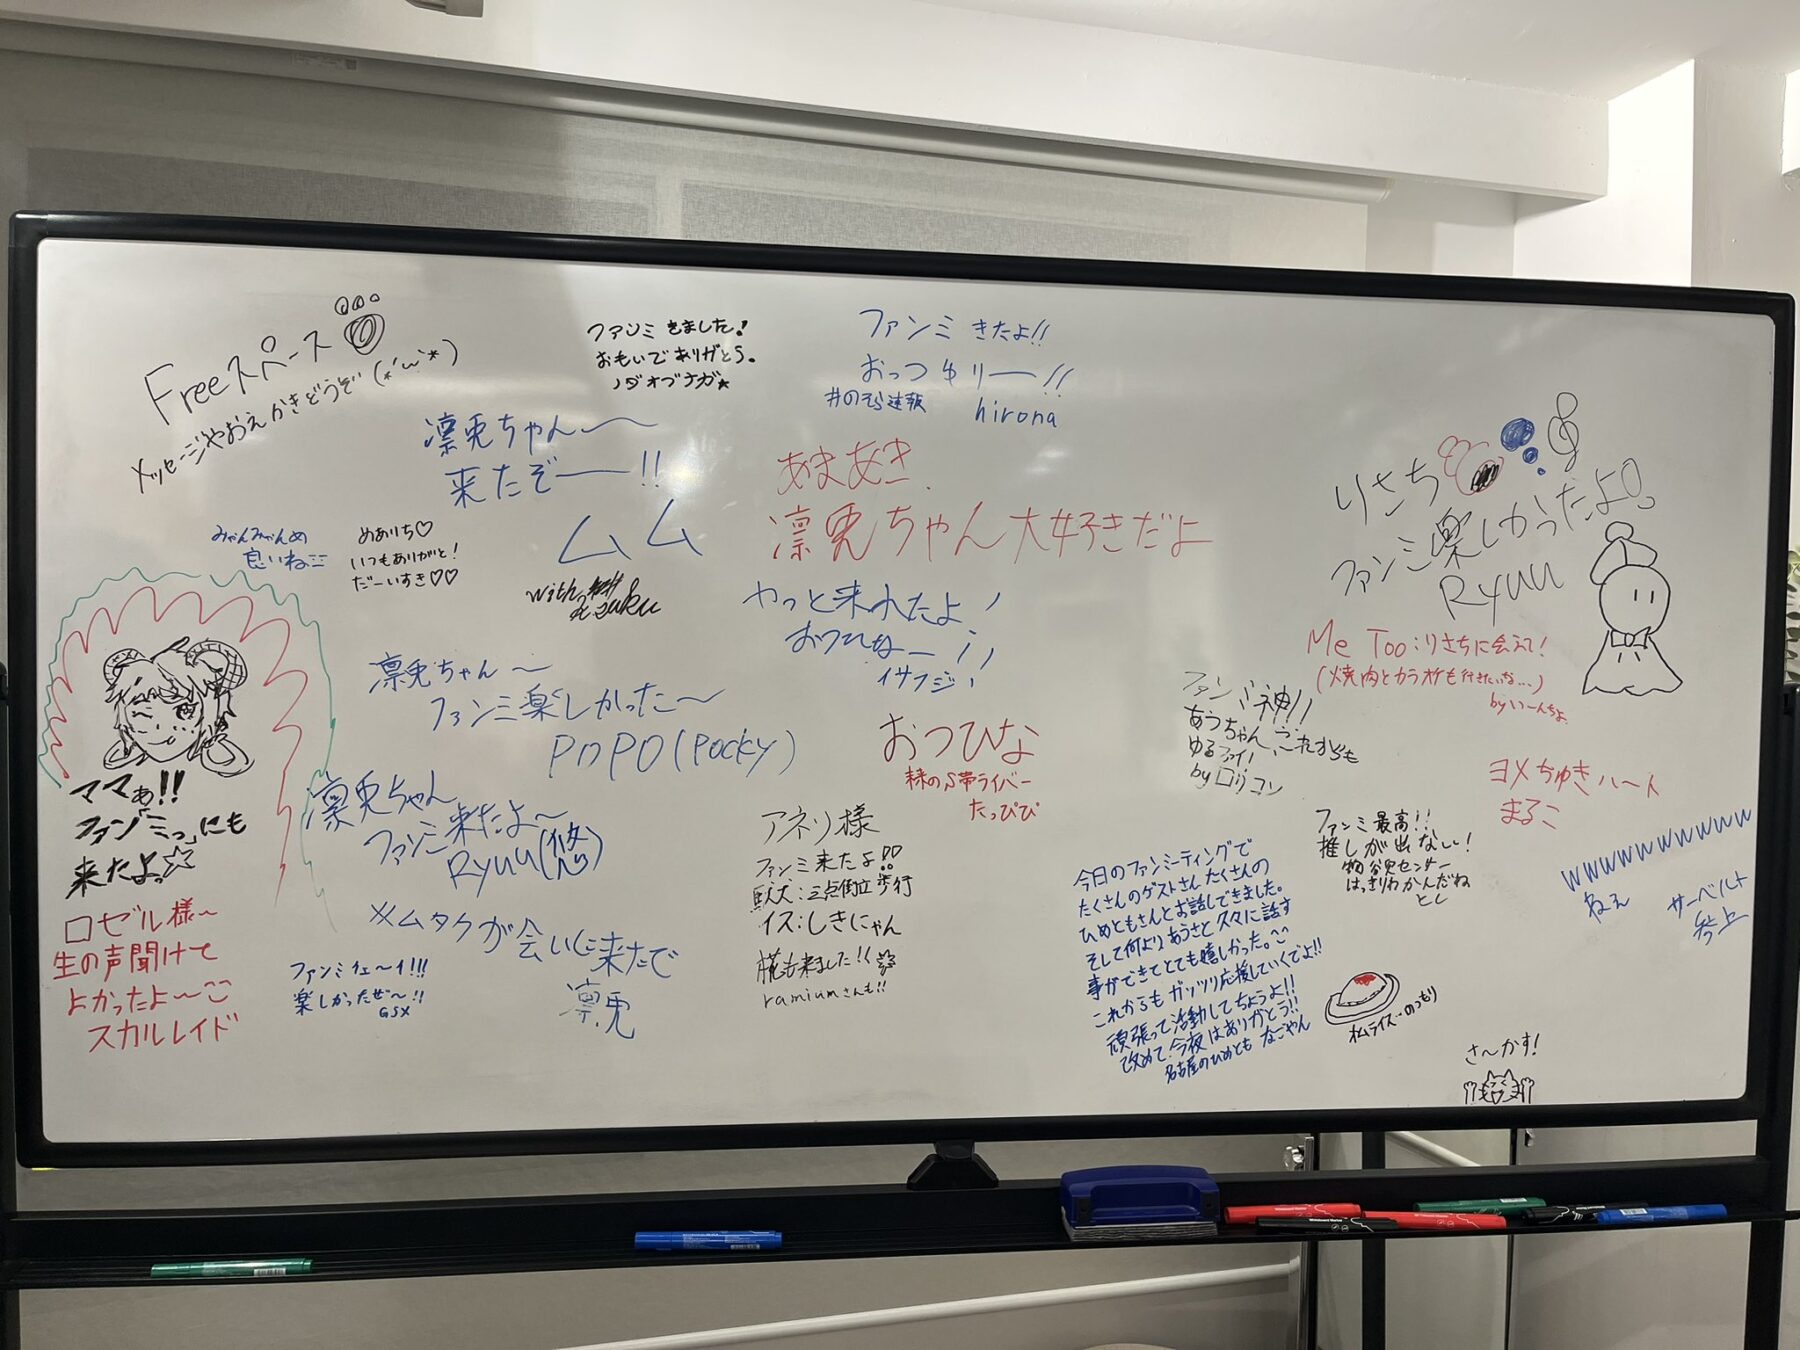 Freeスペース
メッセージやおえかきどうぞ(*'ω'*)
ファンミ きました!
おもいで ありがとう。
ノダオブナガ★
ファンミ きたよ!!
おっつゆりー!!
#のそら速報
hirona
凛兎ちゃん〜
来たぞー!!
あまあき
凛兎ちゃん大好きだよ
りさち
ファンミ楽しかったよ!。
Ryuu
みゃんみゃんめ
良いね
めありち♡
いつもありがと!
だーいすき♡♡
ムム
with
やっと来れたよ!
おつひなー!!
イサフジ!
Me Too:りさちに会えて!
(焼肉とカラオケも行きたいな...)
byいーんちょ
凛兎ちゃん〜
ファンミ楽しかった〜
POPO(Pocky)
おつひな
緑のS帯ライバー
たっぴぴ
ファンミ神!!
あうちゃん
ゆるファイ!
by ロリコン
ヨメちゅきハート
まるこ
ママぁ!!
ファン「ミっ」にも
来たよっ☆
凛兎ちゃん
ファンミ来たよ〜
Ryuu(悠)
アネリ様
ファンミ来たよ!!
獣犬:三点倒立歩行
イス:しきにゃん
ファンミ最高!!
推しが出ない!
物欲センサー
はっきりわかんだね
とし
wwwwwwwwww
ねぇ
サーベルト
参上
ロゼル様〜
生の声聞けて
よかったよ〜
スカルレイド
ファンミイェーイ!!!
楽しかったぜ〜!!
GSX
×ムタクが会いに来たで
凛兎
来ました!!
ramiumさんも!!
今日のファンミーティングで
たくさんのゲストさん たくさんの
ひめともさんとお話しできました。
そして何よりあうさと久々に話す
事ができてとても嬉しかった。
これからもガッツリ応援していくでよ!!
頑張って活動してちょうよ!!
改めて、今夜はありがとう!!
名古屋のひめとも なごやん
オムライス…のつもり
さ〜かす!